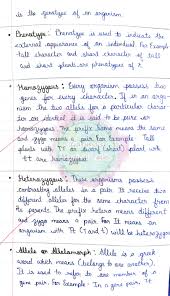 is the genotype of an organism.
• Phenotype : Phenotype is used to indicate the
external appearance of an individual. For Example
Tall character and short character of tall
and short plants are phenotypes of
• Homozygous : Every organism possess two
genes for every character. If in an organ-
ism the two alleles for a particular charac-
ter are identical it is said to be pure or
homozygous. The prefix homo means the same
and zygo means a pair. For Example. Tall
plants with TT or dwarf (short) plant with
tt are homozygous.
• Heterozygous : These organisms possess
contrasting alleles in a pair. It receives two
different alleles for the same character from
the parents. The prefix hetero means different
and zygo means a pair. For It means an
organism with Tt (T and t) will be heterozygous
• Allele or Allelomorph : Allele is a greek
word which means (belongs to one another).
It is used to refer to one member of a
gene pair. For Example : In a gene pair, tt